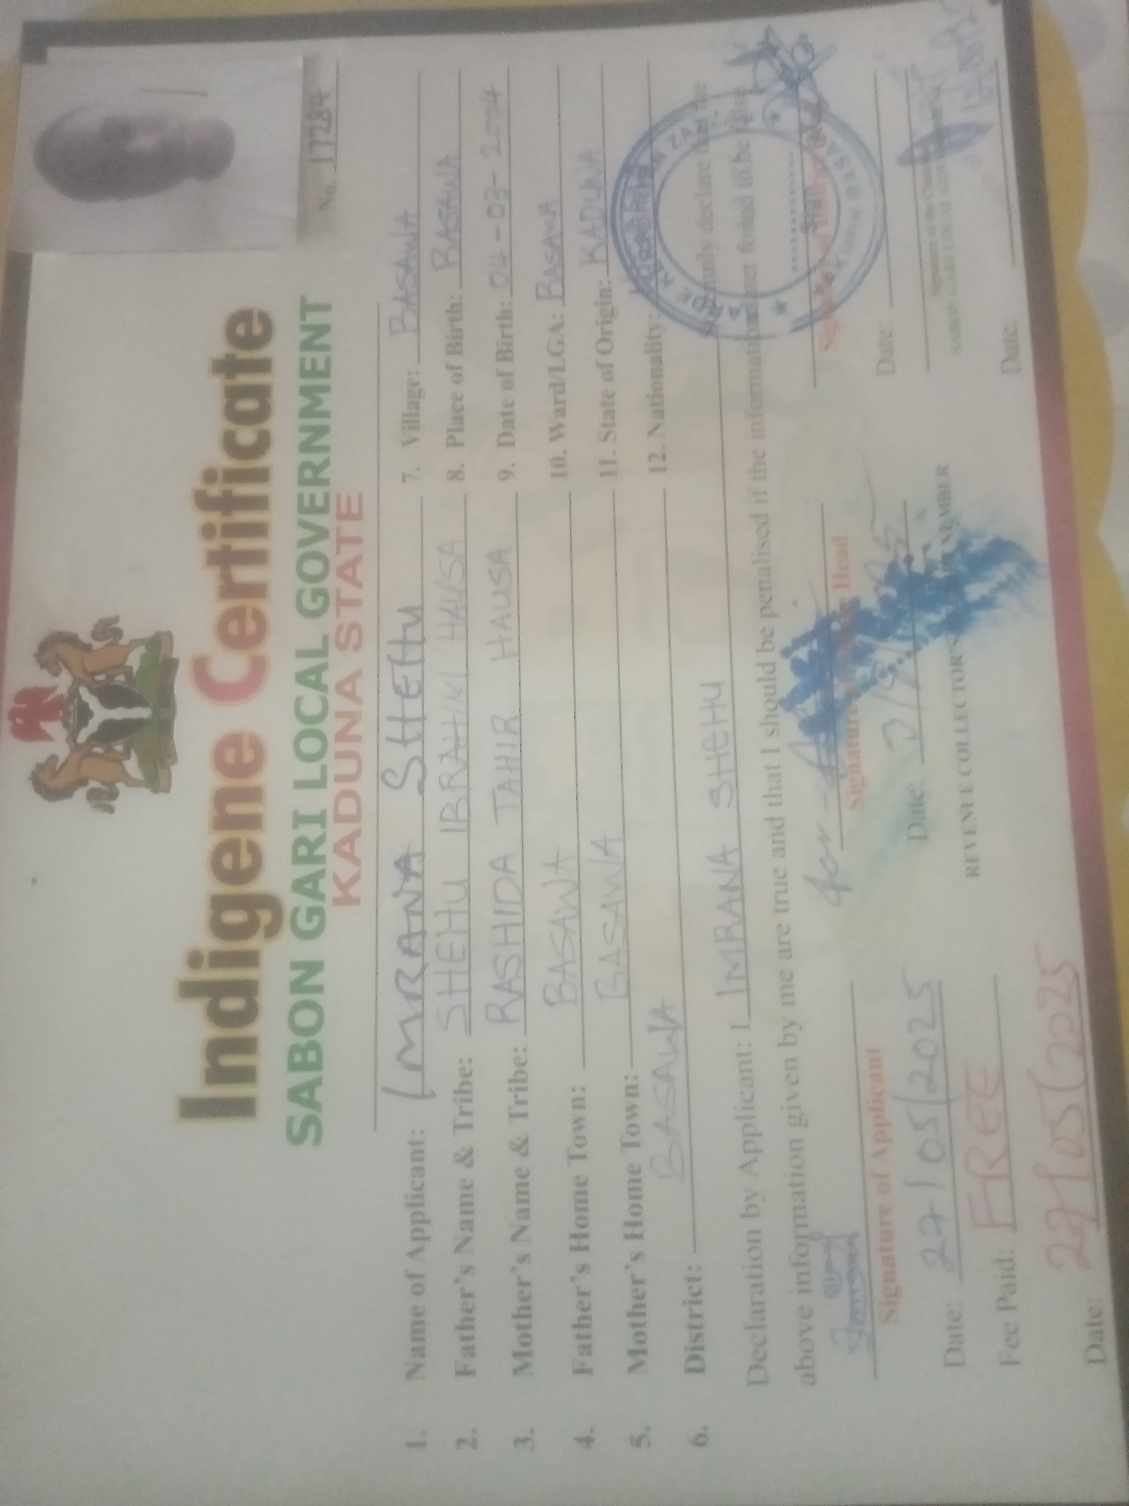 No. 17284
Indigene Certificate
SABON GARI LOCAL GOVERNMENT
KADUNA STATE
1. Name of Applicant: IMRANA SHEHU
2. Father's Name & Tribe: SHEHU IBRAHIM HAUSA
3. Mother's Name & Tribe: RASHIDA TAHIR HAUSA
4. Father's Home Town: BASAWA
5. Mother's Home Town: BASAWA
6. District: BASAWA
7. Village: BASAWA
8. Place of Birth: BASAWA
9. Date of Birth: 04-03-2004
10. Ward/LGA: BASAWA
11. State of Origin: KADUNA
12. Nationality:
Declaration by Applicant: I IMRANA SHEHU declare
above information given by me are true and that I should be penalised if the
Signature of Applicant
Date: 27/05/2025
Fee Paid: FREE
Date: 27/05/2025
for
Signature Head
Date:
REVENUE COLLECTOR'S
Date:
Date: